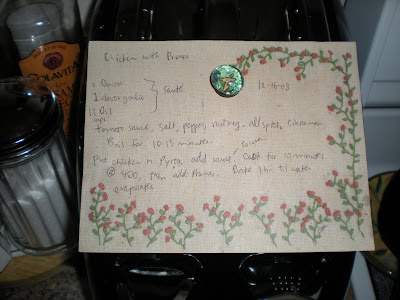 COLAVITA
Chicken with Prunes
12-16-03
1 Onion
2 cloves garlic } sauté
1 T Oil
tomato sauce, salt, pepper, nutmeg, allspice, cinnamon
Boil for 10-15 minutes
Put chicken in Pyrex, add sauce. Cook for 10 minutes
@ 400, then add prunes. Bake 1 hr til water
evaporates